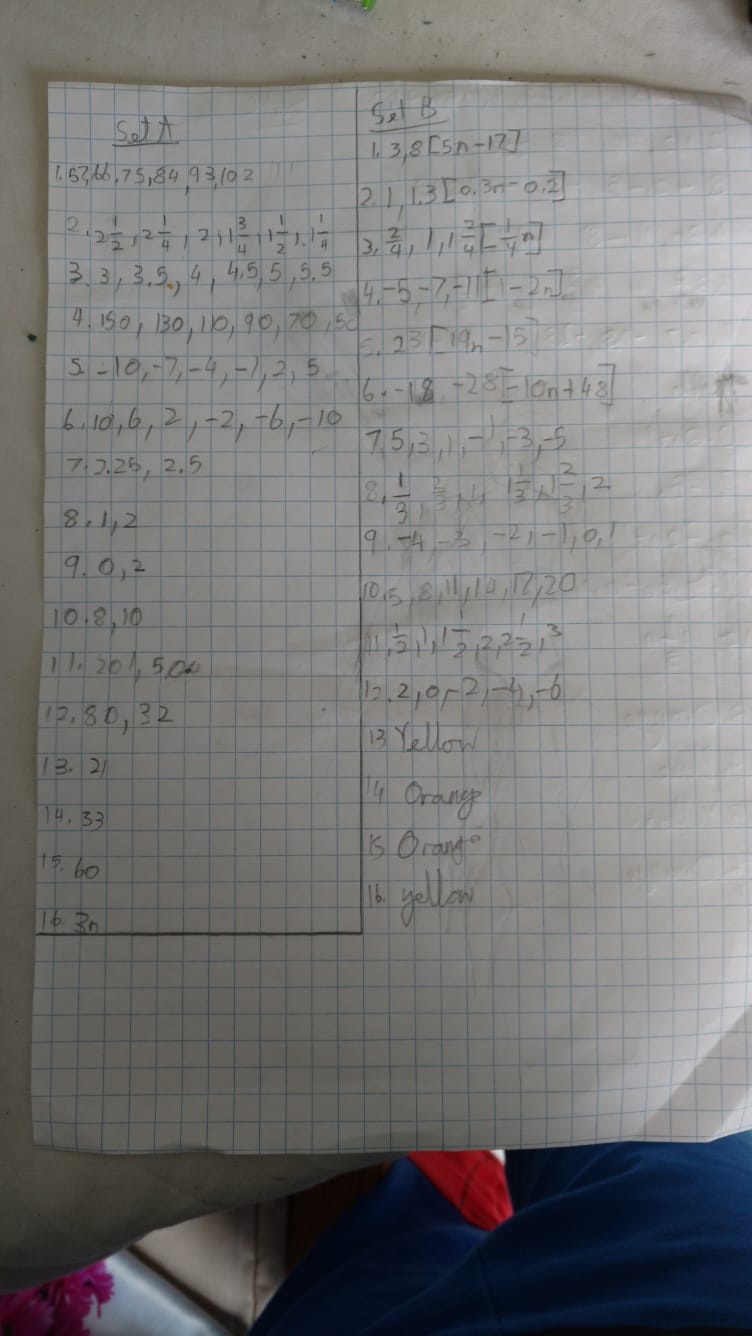 Set A
1. 57,66,75,84,93,102
2. 2 1/2, 2 1/4, 2, 1 3/4, 1 1/2, 1 1/4
3. 3, 3.5, 4, 4.5, 5, 5.5
4. 150, 130, 110, 90, 70, 50
5. -10, -7, -4, -1, 2, 5
6. 10, 6, 2, -2, -6, -10
7. 2.25, 2.5
8. 1, 2
9. 0, 2
10. 8, 10
11. 201,
12. 80, 32
13. 21
14. 33
15. 60
16. 3n
Set B
1. 3,8 [5n-17]
2. 1, 1.3 [0.3n-0.2]
3. 2/4, 1, 1 2/4 [-1/4n]
4. -5, -7, -11 [1-2n]
5. 23 [19n-15]
6. -18, -28 [-10n+48]
7. 5, 3, 1, -1, -3, -5
8. 1/3, 2/3, 1, 1 1/3, 1 2/3, 2
9. -4, -3, -2, -1, 0, 1
10. 5, 8, 11, 14, 17, 20
11. 1/2, 1, 1 1/2, 2, 2 1/2, 3
12. 2, 0, -2, -4, -6
13 Yellow
14 Orange
15 Orange
16. yellow